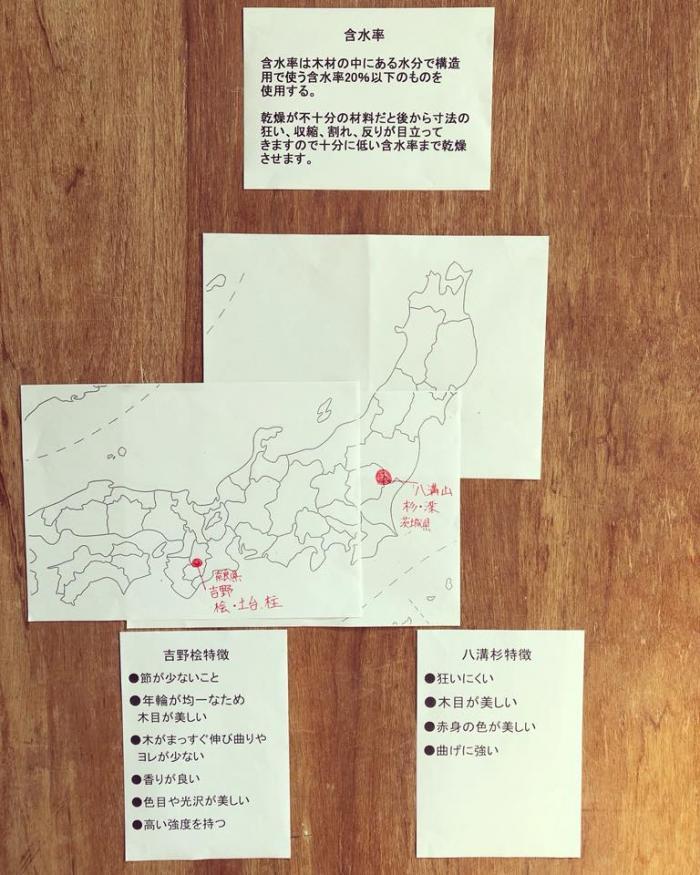 含水率
含水率は木材の中にある水分で構造
用で使う含水率20%以下のものを
使用する。
乾燥が不十分の材料だと後から寸法の
狂い、収縮、割れ、反りが目立って
きますので十分に低い含水率まで乾燥
させます。
八溝山
杉・梁
茨城県
奈良県
吉野
桧・土台、柱
吉野桧特徴
●節が少ないこと
●年輪が均一なため
木目が美しい
●木がまっすぐ伸び曲りや
ヨレが少ない
●香りが良い
●色目や光沢が美しい
●高い強度を持つ
八溝杉特徴
●狂いにくい
●木目が美しい
●赤身の色が美しい
●曲げに強い